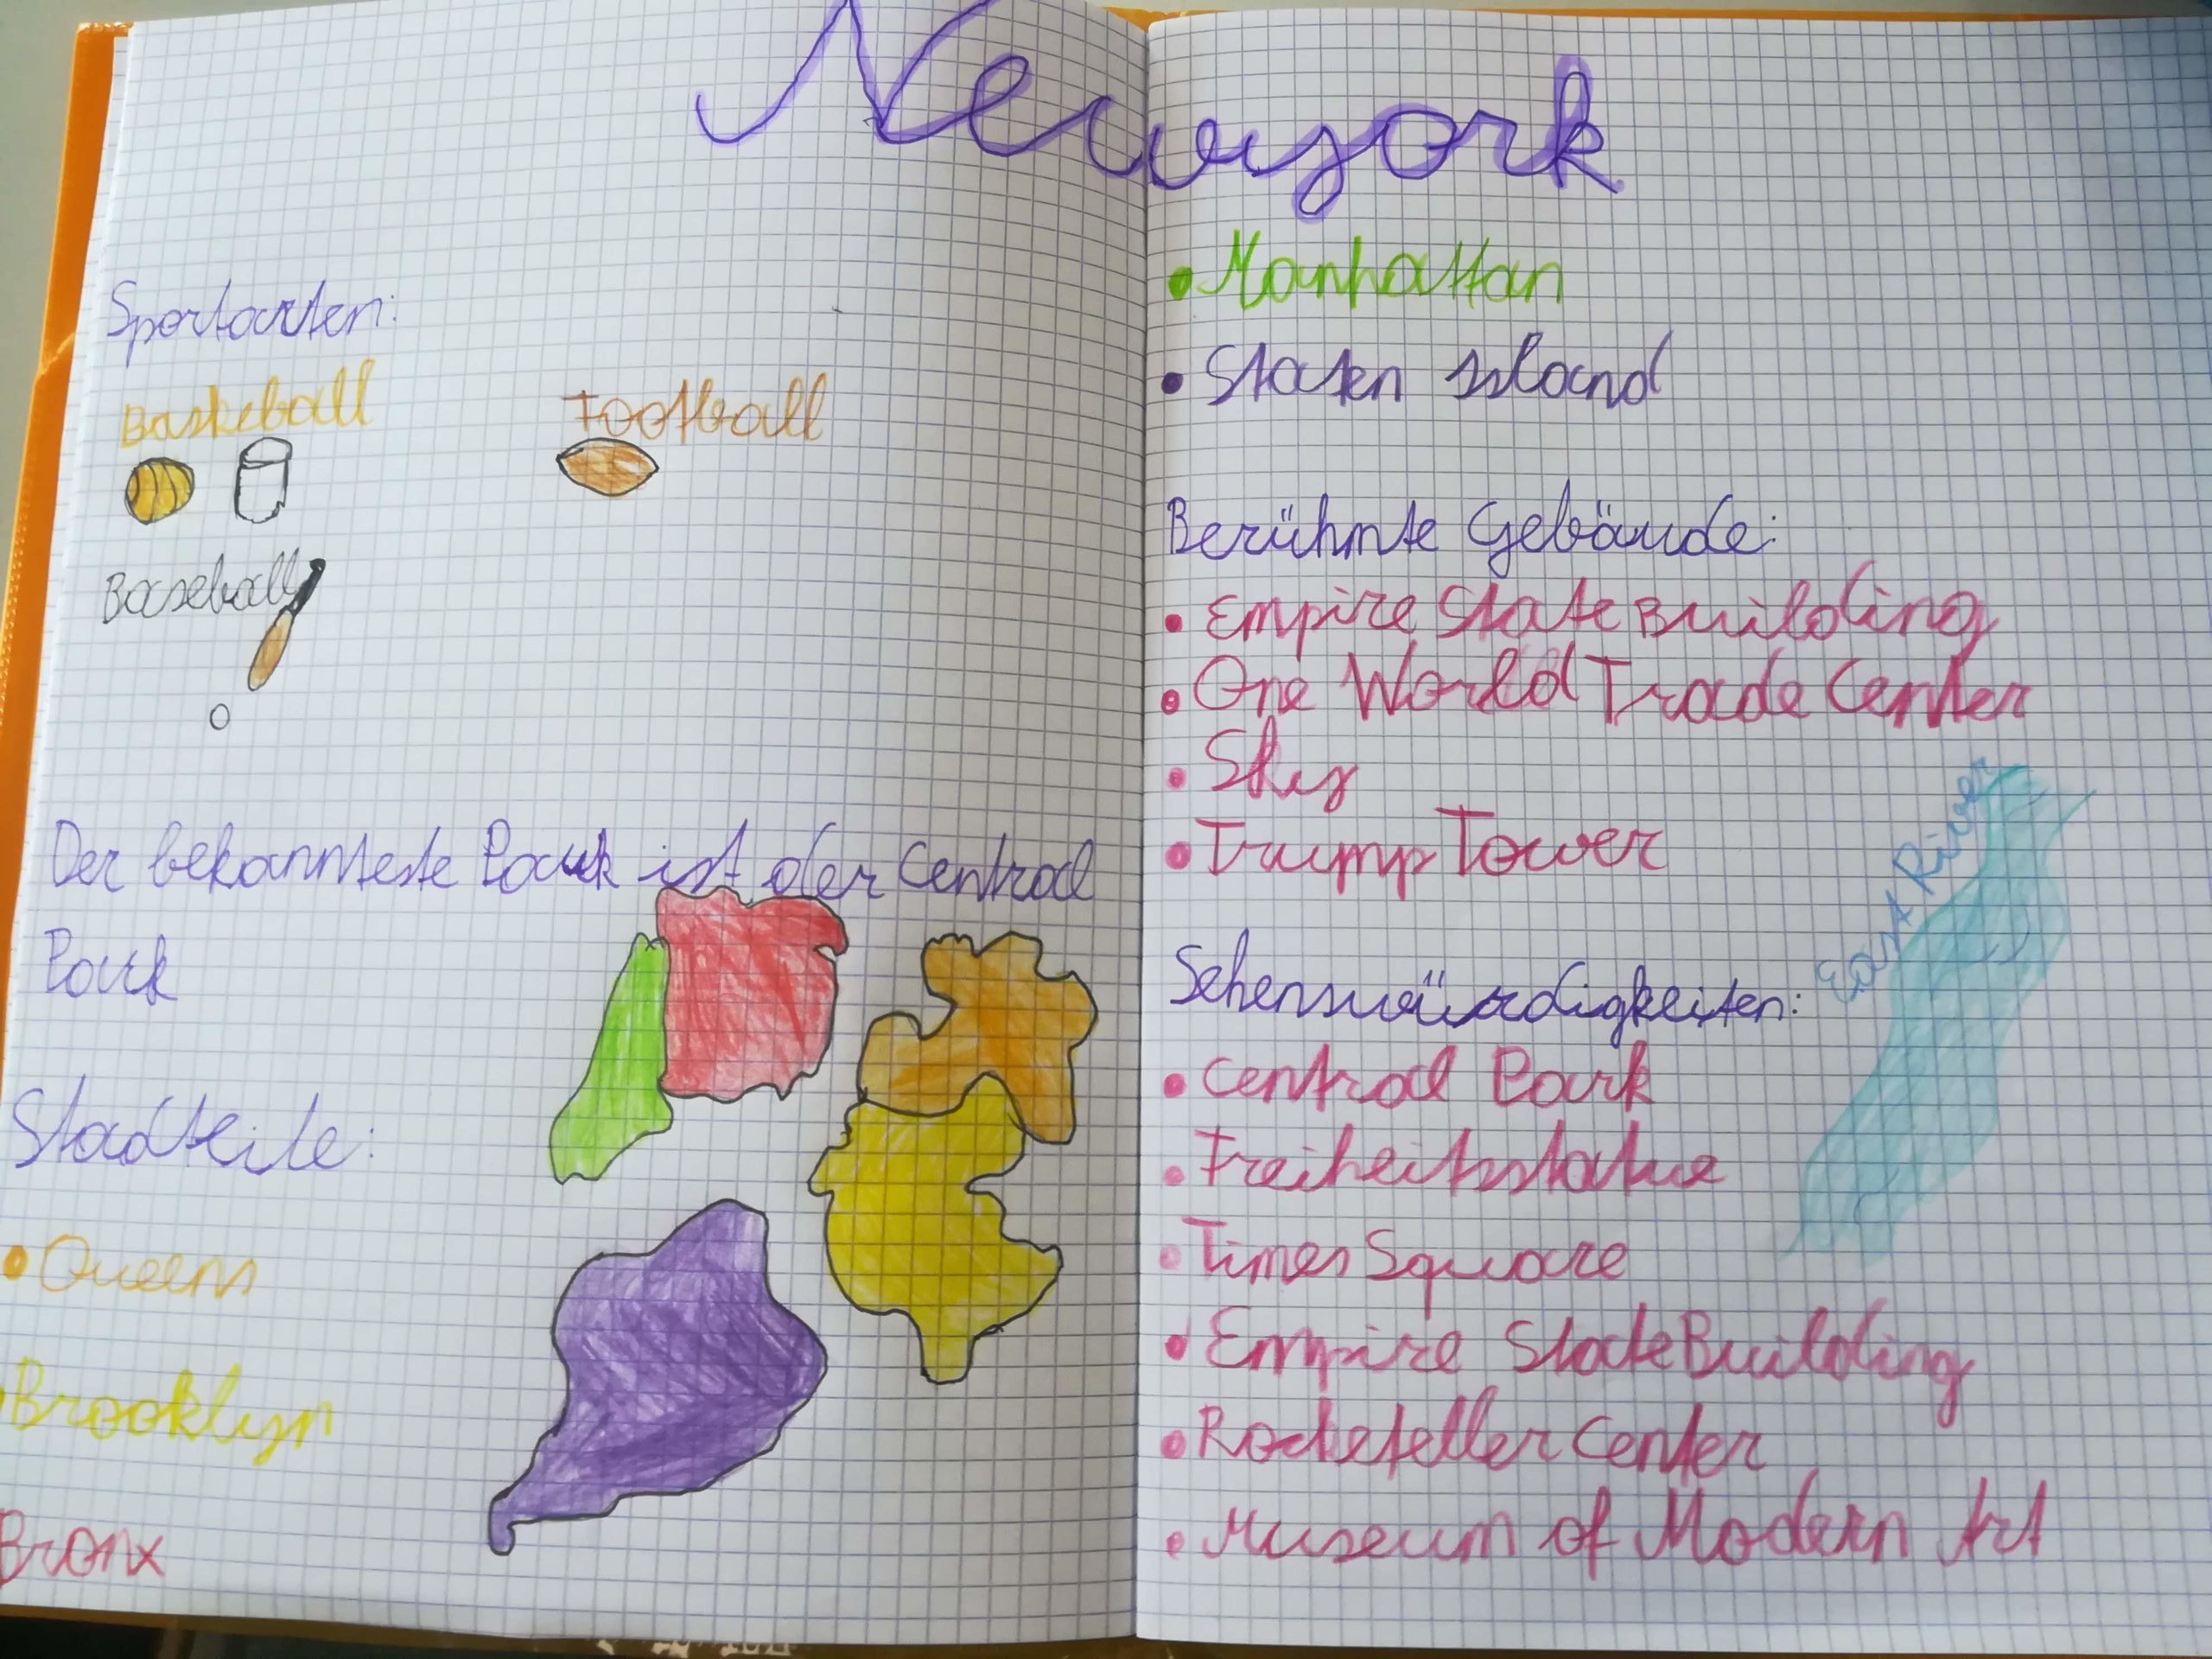 Newyork
Sportarten:
Basketball
Football
Baseball
Der bekannteste Park ist der Central
Park
Stadteile:
• Queens
• Brooklyn
Bronx
• Manhattan
• Staten Island
Berühmte Gebäude:
• Empire State Building
• One World Trade Center
• Sky
• Trump Tower
East River
Sehenswürdigkeiten:
• Central Park
• Freiheitsstatue
• Times Square
• Empire State Building
• Rockefeller Center
• Museum of Modern Art